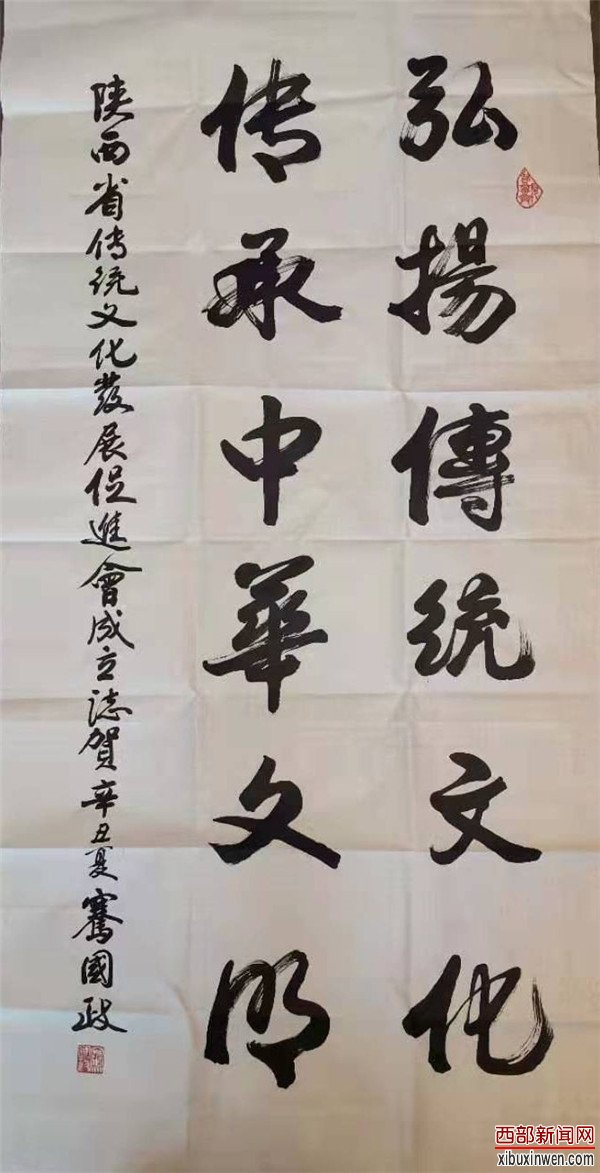 弘揚傳統文化
传承中華文明
陕西省传统文化發展促進會成立誌賀 辛丑夏 騫國政
西部新闻网
xibuxinwen.com